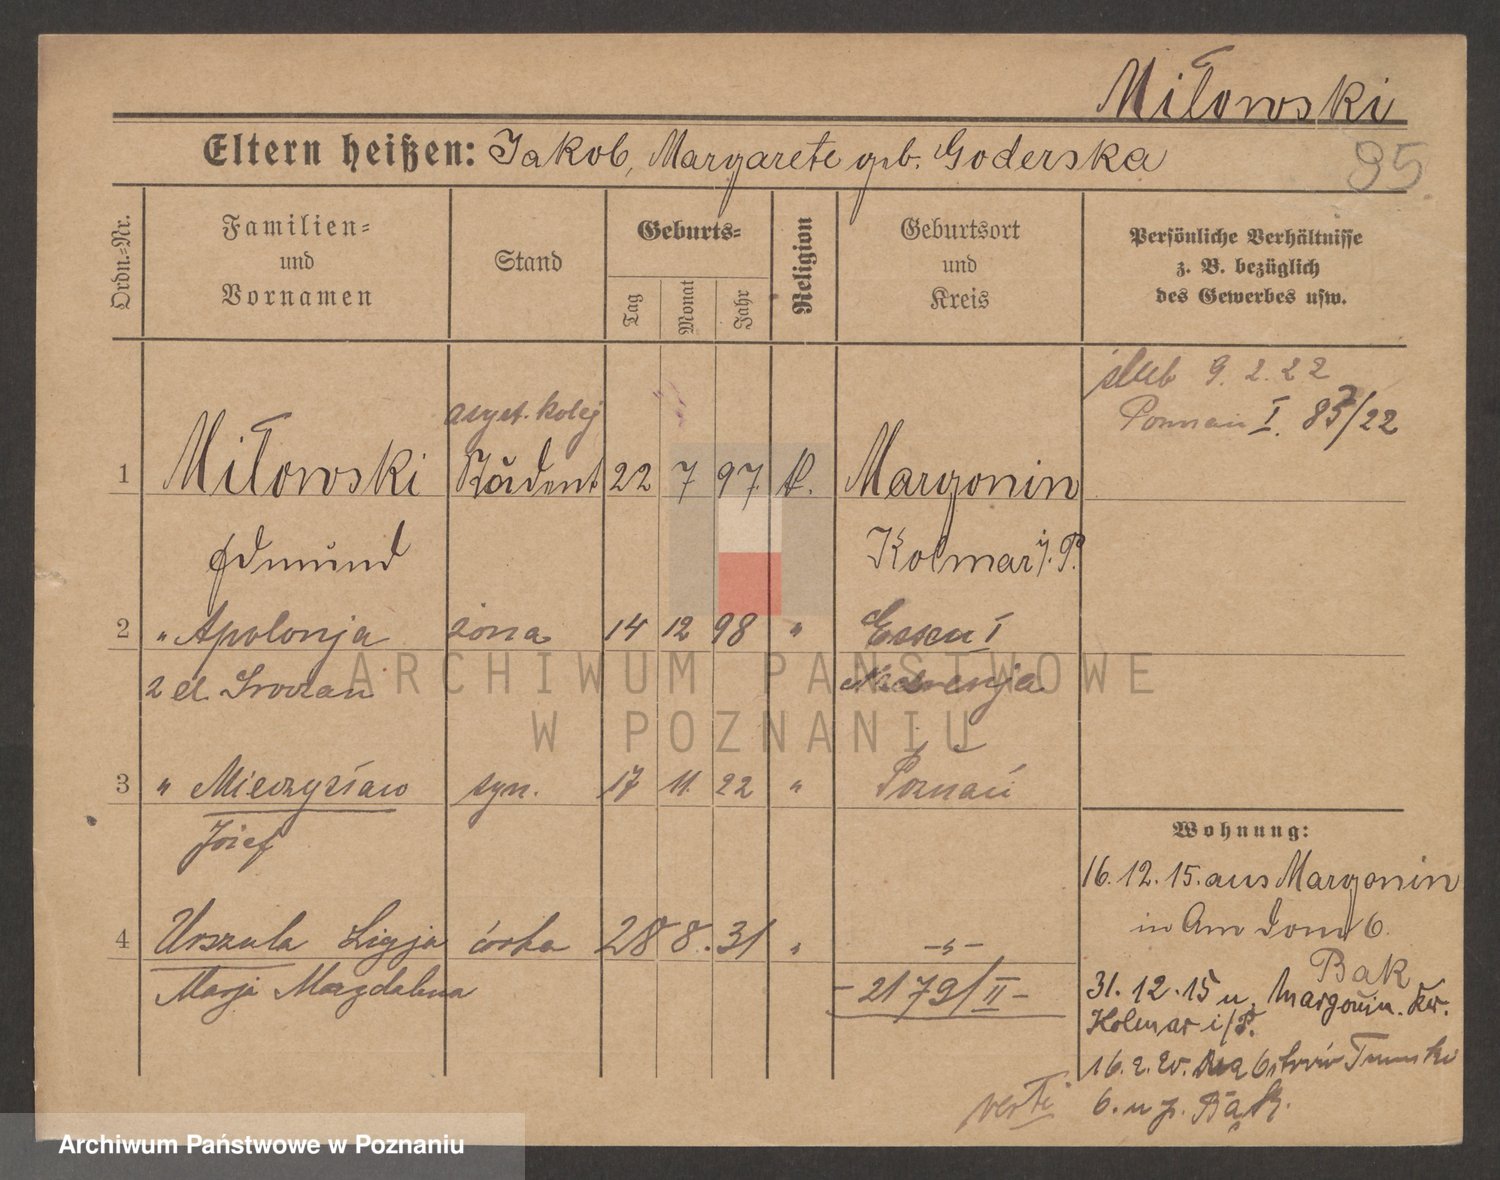 Miłowski
Eltern heißen: Jakob, Margarete geb. Goderska
95
Ordn.-Nr.
Familien-
und
Vornamen
Stand
Geburts-
Tag
Monat
Jahr
Religion
Geburtsort
und
Kreis
Persönliche Verhältnisse
z. B. bezüglich
des Gewerbes usw.
ślub 9. 2. 22
Poznań I. /22
asyst. kolej
1 Miłowski Student 22 7 97 k. Margonin
Edmund Kolmar i/. P.
2 " Apolonja żona 14 12 98 " Essen
Nadrenja
3 " Mieczysław syn. 17 11. 22 " Poznań
Józef
4 Urszula Ligja córka 28 8. 31 "
Marja Magdalena
- 2179/II -
Wohnung:
16. 12. 15. aus Margonin
in Am Dom 6.
Bąk
31. 12. 15 n. Margonin. Kr.
Kolmar i/P.
16. 2. 20. Ostrów Tumski
6. u p. Bąk.
verte
ARCHIWUM PAŃSTWOWE
W POZNANIU
Archiwum Państwowe w Poznaniu